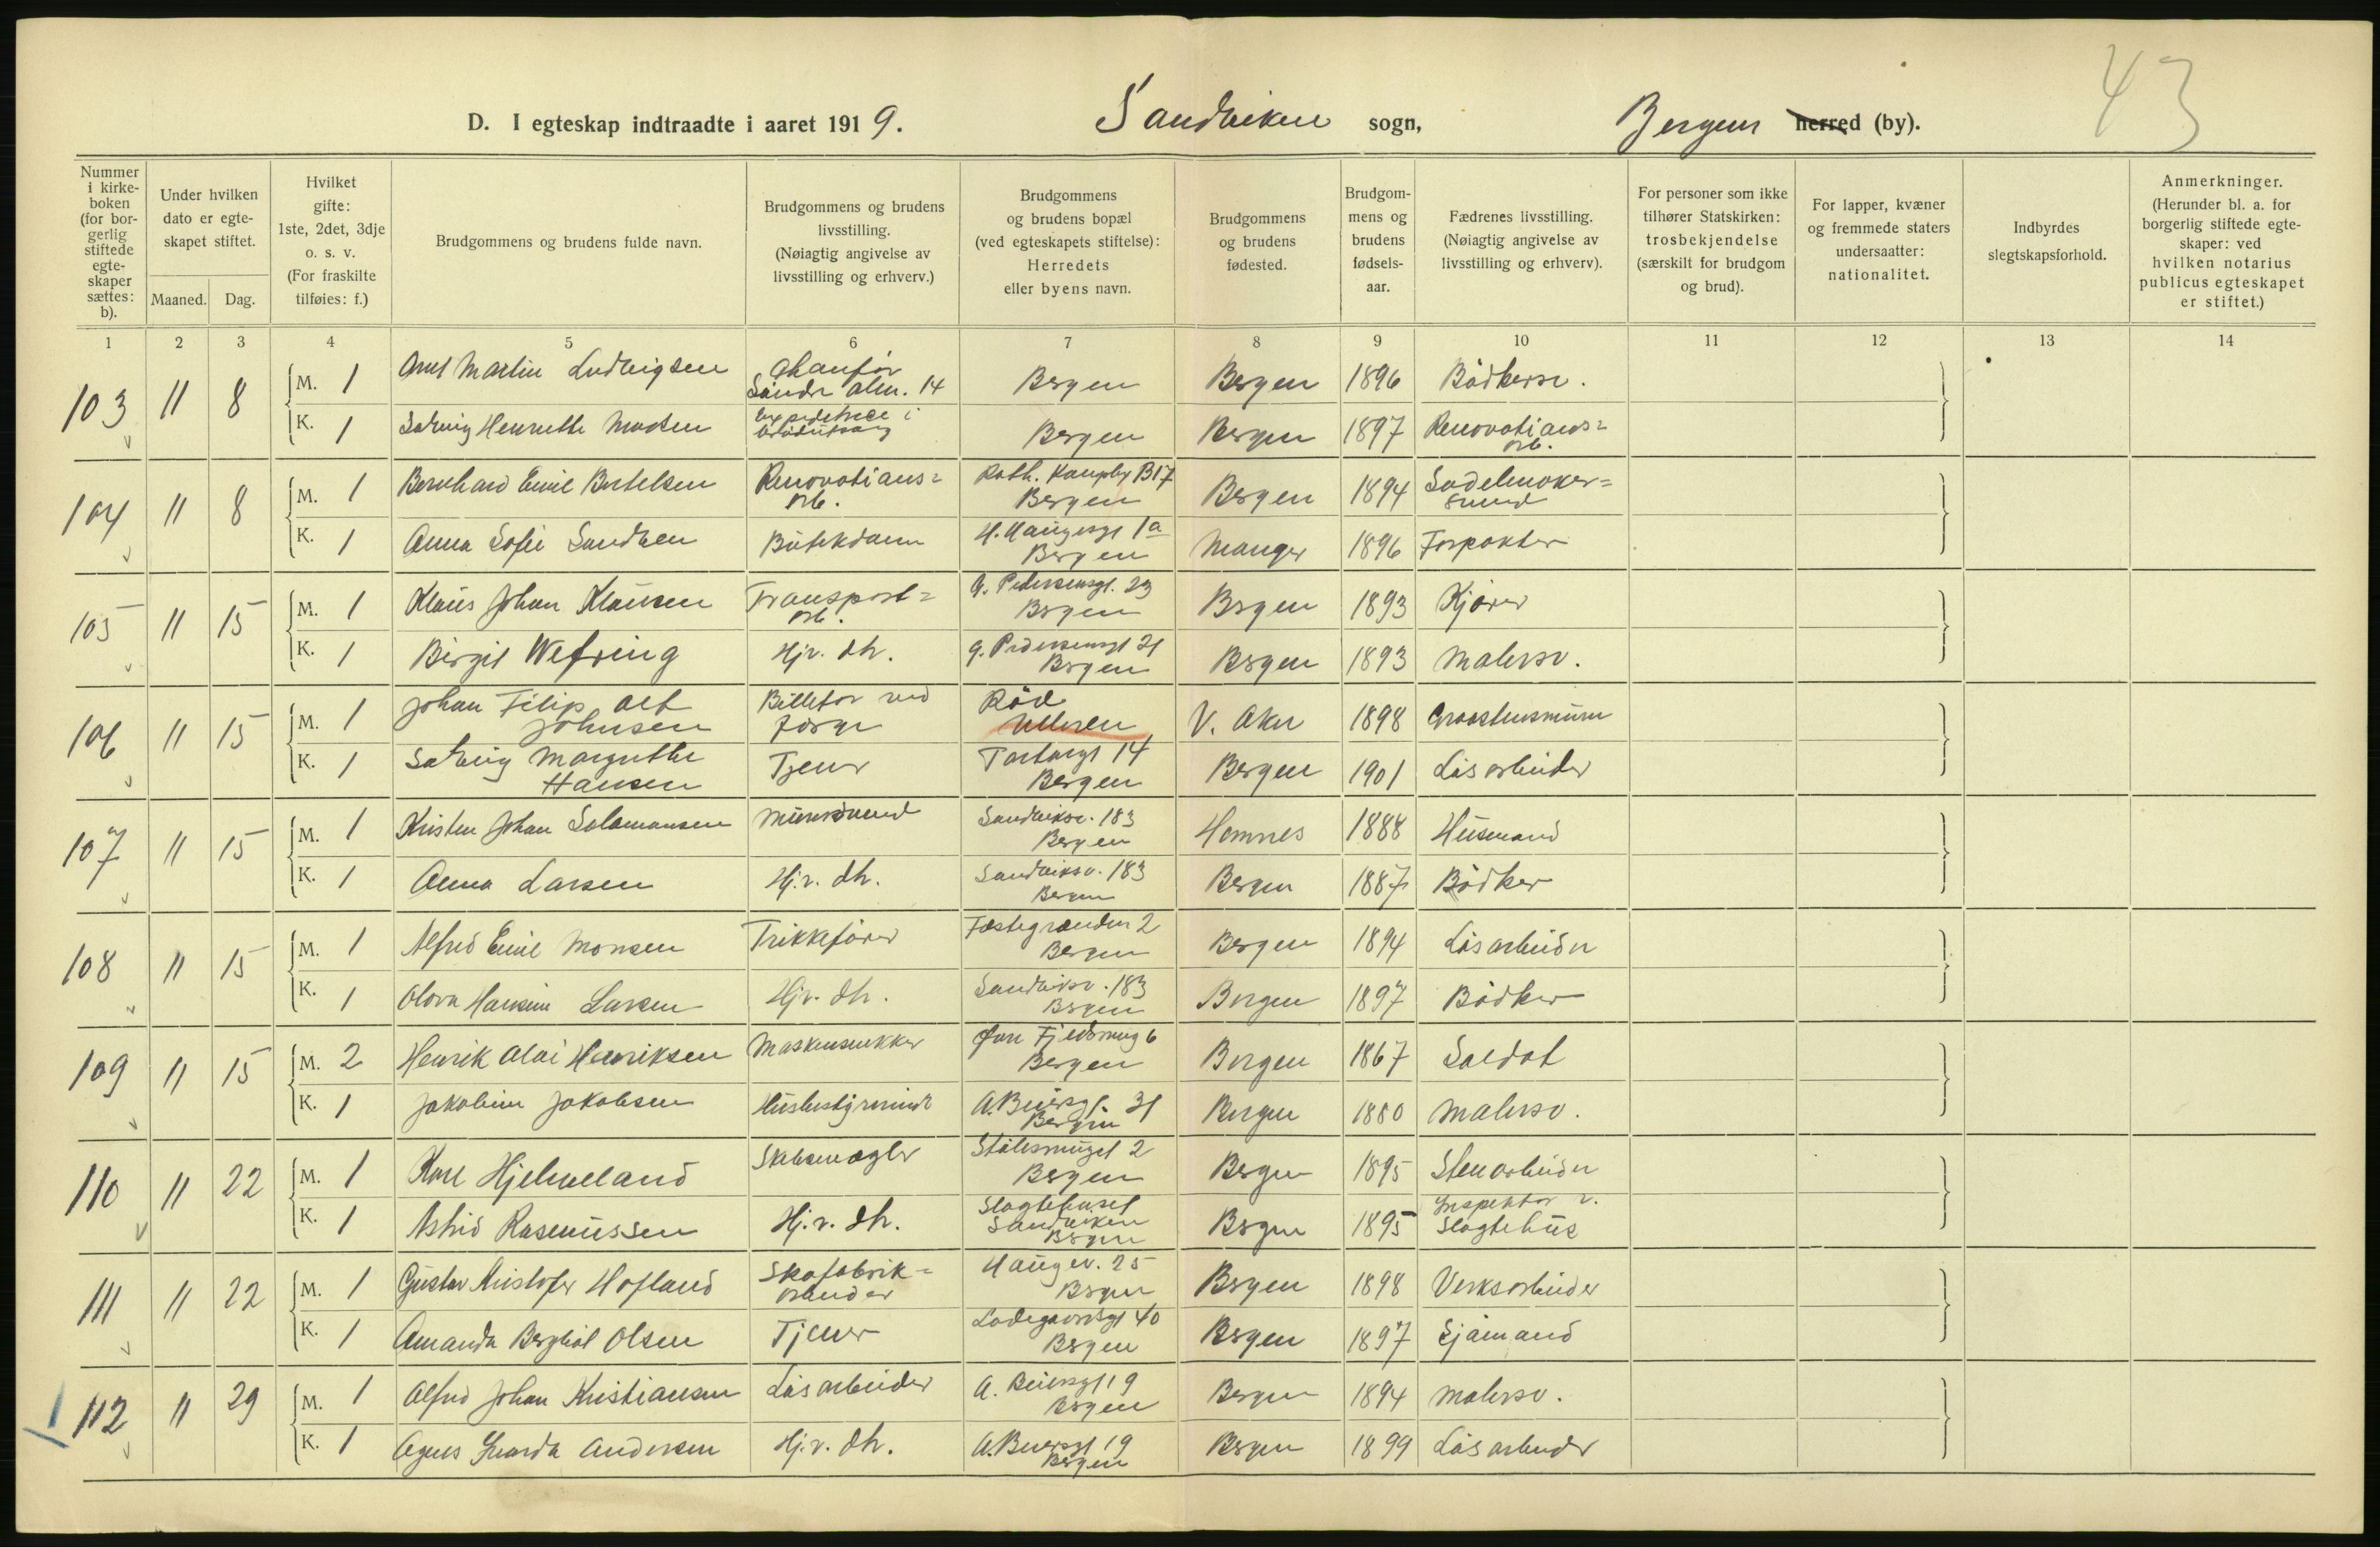 43
D. I egteskap indtraadte i aaret 1919. Sandviken sogn, Bergens herred (by).
Nummer i kirkeboken (for borgerlig stiftede egteskaper sættes: b).
Under hvilken dato er egteskapet stiftet.
Maaned. Dag.
Hvilket gifte: 1ste, 2det, 3dje o. s. v. (For fraskilte tilføies: f.)
Brudgommens og brudens fulde navn.
Brudgommens og brudens livsstilling. (Nøiagtig angivelse av livsstilling og erhverv.)
Brudgommens og brudens bopæl (ved egteskapets stiftelse): Herredets eller byens navn.
Brudgommens og brudens fødested.
Brudgommens og brudens fødselsaar.
Fædrenes livsstilling. (Nøiagtig angivelse av livsstilling og erhverv).
For personer som ikke tilhører Statskirken: trosbekjendelse (særskilt for brudgom og brud).
For lapper, kvæner og fremmede staters undersaatter: nationalitet.
Indbyrdes slegtskapsforhold.
Anmerkninger. (Herunder bl. a. for borgerlig stiftede egteskaper: ved hvilken notarius publicus egteskapet er stiftet.)
1 2 3 4 5 6 7 8 9 10 11 12 13 14
103 11 8 M. 1 Martin Ludvigsen Søndre alm. 14 Bergen Bergen 1896 Bödkersv.
K. 1 Solveig Henriette Madsen i Bergen Bergen 1897 Renovations= arb.
104 11 8 M. 1 Bernhard Emil Bertelsen Renovations= arb. B17 Bergen Bergen 1894 Sadelmaker= svend
K. 1 Anna Sofie Sandven Butikdame H. Haugesgt 1a Bergen Manger 1896 Forpakter
105 11 15 M. 1 Klaus Johan Klausen Transport= arb. G. Pedersensgt. 23 Bergen Bergen 1893 Kjører
K. 1 Birgit Wefring Hj. v. dh. G. Pedersensgt 21 Bergen Bergen 1893 Malersv.
106 11 15 M. 1 Johan Filip Alf Johnsen Billetør ved Röd Ulleren V. Aker 1898
K. 1 Solveig Margrethe Hansen Tjener 14 Bergen Bergen 1901 Lösarbeider
107 11 15 M. 1 Kristen Johan Salamonsen Mursvend Sandviksv. 183 Bergen Hemnes 1888 Husmand
K. 1 Anna Larsen Hj. v. dh. Sandviksv. 183 Bergen Bergen 1887 Bödker
108 11 15 M. 1 Alfred Emil Monsen Trikkefører Fæstegrænden 2 Bergen Bergen 1894 Lösarbeider
K. 1 Larsen Hj. v. dh. Sandviksv. 183 Bergen Bergen 1897 Bödker
109 11 15 M. 2 Henrik Olai Henriksen Maskinsnekker Øvre Fjeldsmug 6 Bergen Bergen 1867 Soldat
K. 1 Jakobine Jakobsen Husbestyrerinde A. Beiersgt. 31 Bergen Bergen 1880 Malersv.
110 11 22 M. 1 Karl Hjelmeland Skibsmægler Stølesmuget 2 Bergen Bergen 1895 Stenarbeider
K. 1 Astrid Rasmussen Hj. v. dh. Slagtehuset Sandviken Bergen Bergen 1895 Inspektør v. Slagtehus
111 11 22 M. 1 Gustav Kristofer Hofland Skofabrik= arbeider Haugev. 25 Bergen Bergen 1898 Verksarbeider
K. 1 Amanda Bergliot Olsen Tjener Ladegaardsgt 40 Bergen Bergen 1897 Sjömand
112 11 29 M. 1 Alfred Johan Kristiansen Lösarbeider A. Beiersgt 19 Bergen Bergen 1894 Malersv.
K. 1 Agnes Andersen Hj. v. dh. A. Beiersgt 19 Bergen Bergen 1899 Lösarbeider